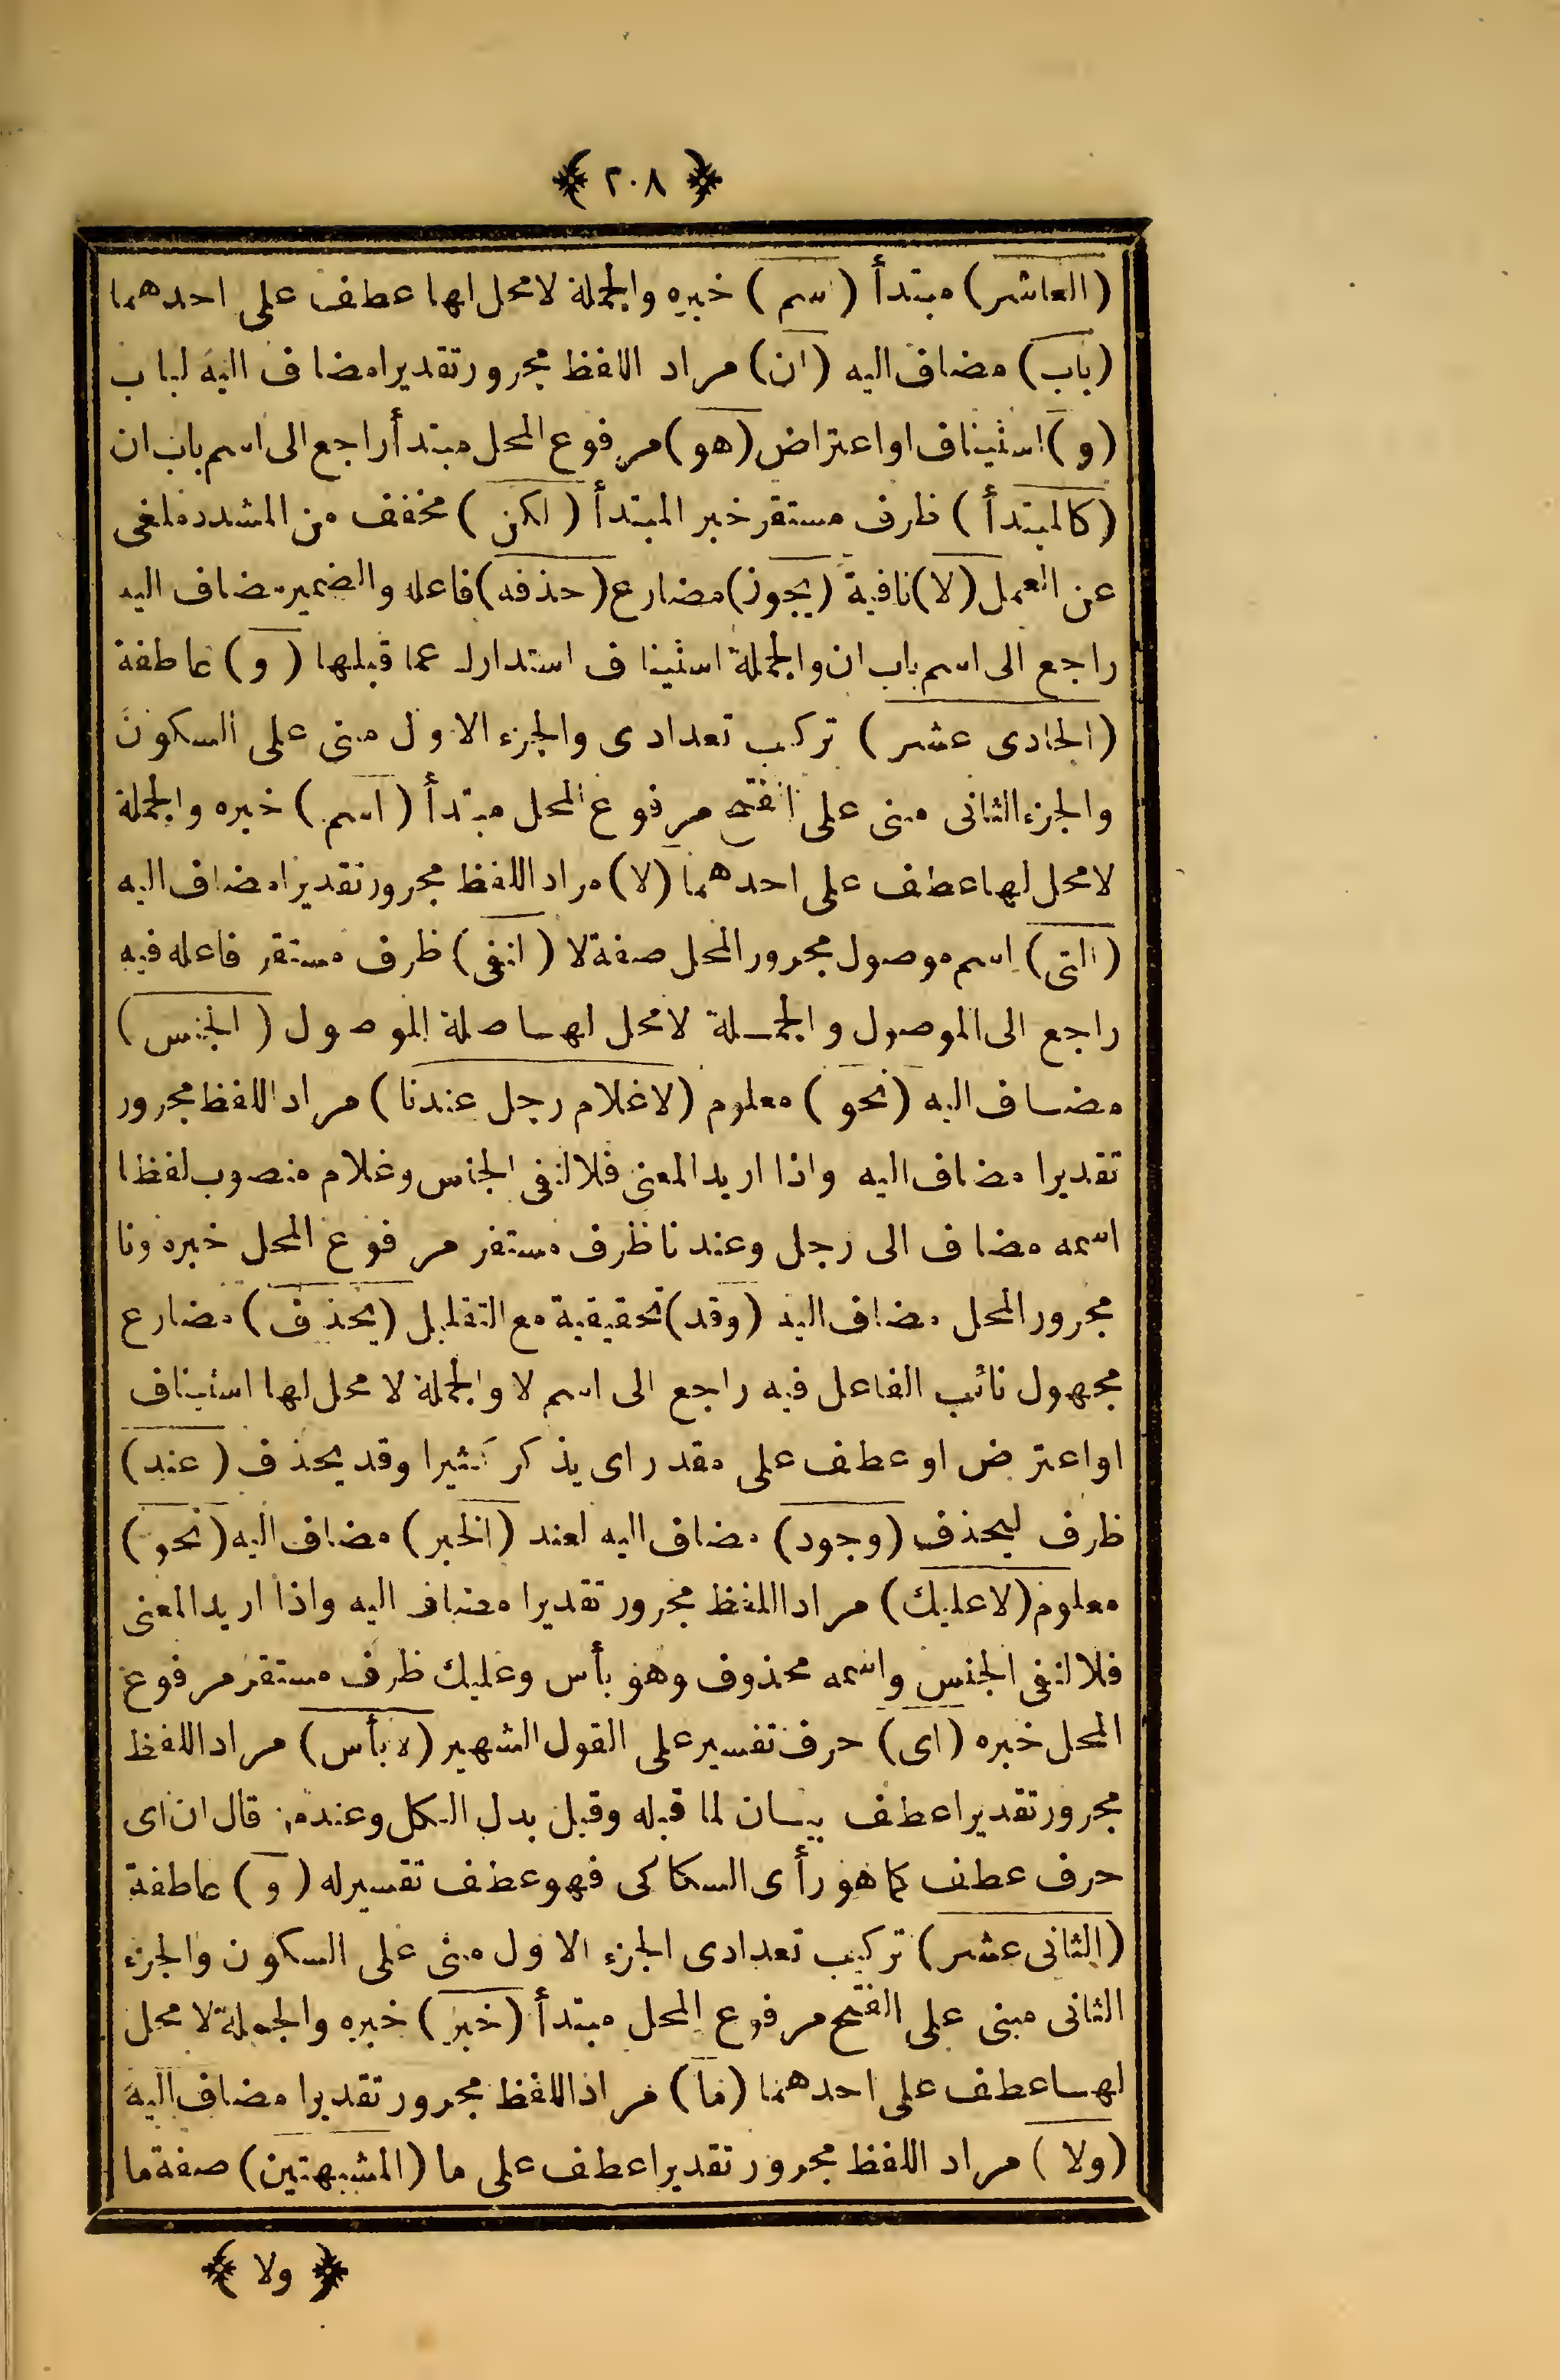 ﴿ ٢٠٨ ﴾
(العاشر) مبتدأ (اسم) خبره والجملة لامحل لها عطف على احدهما
(باب) مضاف اليه (ان) مراد اللفظ مجرور تقديرا مضاف اليه لباب
(و) استيناف او اعتراض (هو) مرفوع المحل مبتدأ راجع الى اسم باب ان
(كالمبتدأ) ظرف مستقر خبر المبتدأ (لكن) مخفف من المشدد ملغى
عن العمل (لا) نافية (يجوز) مضارع (حذفه) فاعله والضمير مضاف اليه
راجع الى اسم باب ان والجملة استيناف استدراك عما قبلها (و) عاطفة
(الحادى عشر) تركيب تعدادى والجزء الاول مبنى على السكون
والجزء الثانى مبنى على الفتح مرفوع المحل مبتدأ (اسم) خبره والجملة
لامحل لها عطف على احدهما (لا) مراد اللفظ مجرور تقديرا مضاف اليه
(التى) اسم موصول مجرور المحل صفة لا (لنفى) ظرف مستقر فاعله فيه
راجع الى الموصول والجملة لامحل لها صلة الموصول (الجنس)
مضاف اليه (نحو) معلوم (لاغلام رجل عندنا) مراد اللفظ مجرور
تقديرا مضاف اليه واذا اريد المعنى فلا لنفى الجنس وغلام منصوب لفظا
اسمه مضاف الى رجل وعندنا ظرف مستقر مرفوع المحل خبره ونا
مجرور المحل مضاف اليه (وقد) تحقيقية مع التقليل (يحذف) مضارع
مجهول نائب الفاعل فيه راجع الى اسم لا والجملة لا محل لها استيناف
او اعتراض او عطف على مقدر اى يذكر كثيرا وقد يحذف (عند)
ظرف ليحذف (وجود) مضاف اليه لعند (الخبر) مضاف اليه (نحو)
معلوم (لاعليك) مراد اللفظ مجرور تقديرا مضاف اليه واذا اريد المعنى
فلا لنفى الجنس واسمه محذوف وهو بأس وعليك ظرف مستقر مرفوع
المحل خبره (اى) حرف تفسير على القول الشهير (لا بأس) مراد اللفظ
مجرور تقديرا عطف بيان لما قبله وقيل بدل الكل وعند من قال ان اى
حرف عطف كما هو رأى السكاكى فهو عطف تفسير له (و) عاطفة
(الثانى عشر) تركيب تعدادى الجزء الاول مبنى على السكون والجزء
الثانى مبنى على الفتح مرفوع المحل مبتدأ (خبر) خبره والجملة لا محل
لها عطف على احدهما (ما) مراد اللفظ مجرور تقديرا مضاف اليه
(ولا) مراد اللفظ مجرور تقديرا عطف على ما (المشبهتين) صفة ما
﴿ ولا ﴾